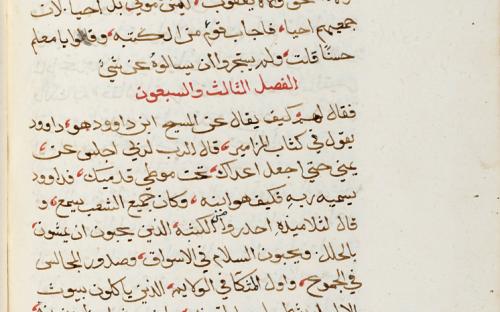 جميعهم احيا، فاجاب قوم من الكتبة، وقالوا يا معلم
حسنًا قلت، ولم يستجروا ان يسالوه عن شي
الفصل الثالث والسبعون
فقال لهم كيف يقال عن المسيح ابن داوود هو، داوود
يقول في كتاب المزامير، قال الرب لربي اجلس عن
يميني حتي اجعل اعداك، تحت موطي قدميك، فداوود
يسميه ربه فكيف هو ابنه، وكان جميع الشعب يسمع، و
قال لتلاميذه احدروا من الكتبة الذين يحبون ان يمشون
بالحلل، ويحبون السلام في الاسواق، وصدور المجالس
في الجموع، واول المتكا في الولايم، الذين ياكلون بيوت